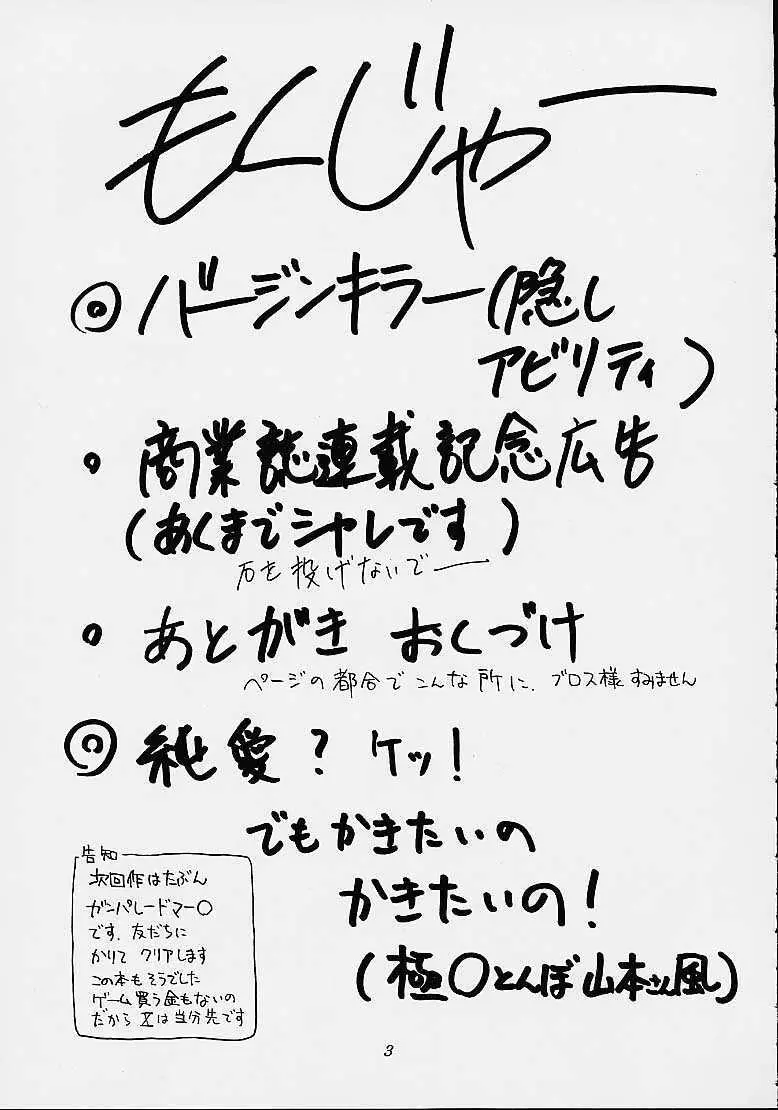 もくじゃー
◎バージンキラー(隠し
アビリティ)
・商業誌連載記念広告
(あくまでシャレです)
石を投げないでー
・あとがき おくづけ
ページの都合でこんな所に、ブロス様すみません
◎純愛?ケッ!
でもかきたいの
かきたいの!
(極〇とんぼ山本さん風)
告知
次回作はたぶん
ガンパレードマー〇
です。友だちに
かりて クリアします
この本もそうでした
ゲーム買う金もないの
だから Xは当分先です
3